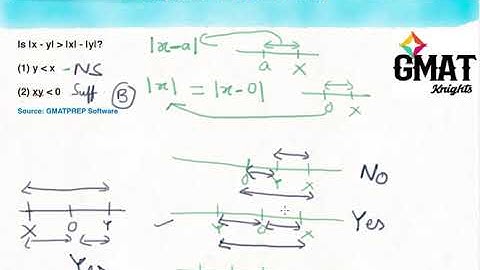 Is |x - y| > |x| - |y|?
(1) y < x - NS
(2) xy < 0 Suff B
Source: GMATPREP Software
|x-a|
a x
|x| = |x-0|
0 x
GMAT
Knights
0 Y X No
X 0 Y
Y 0 X Yes
Yes